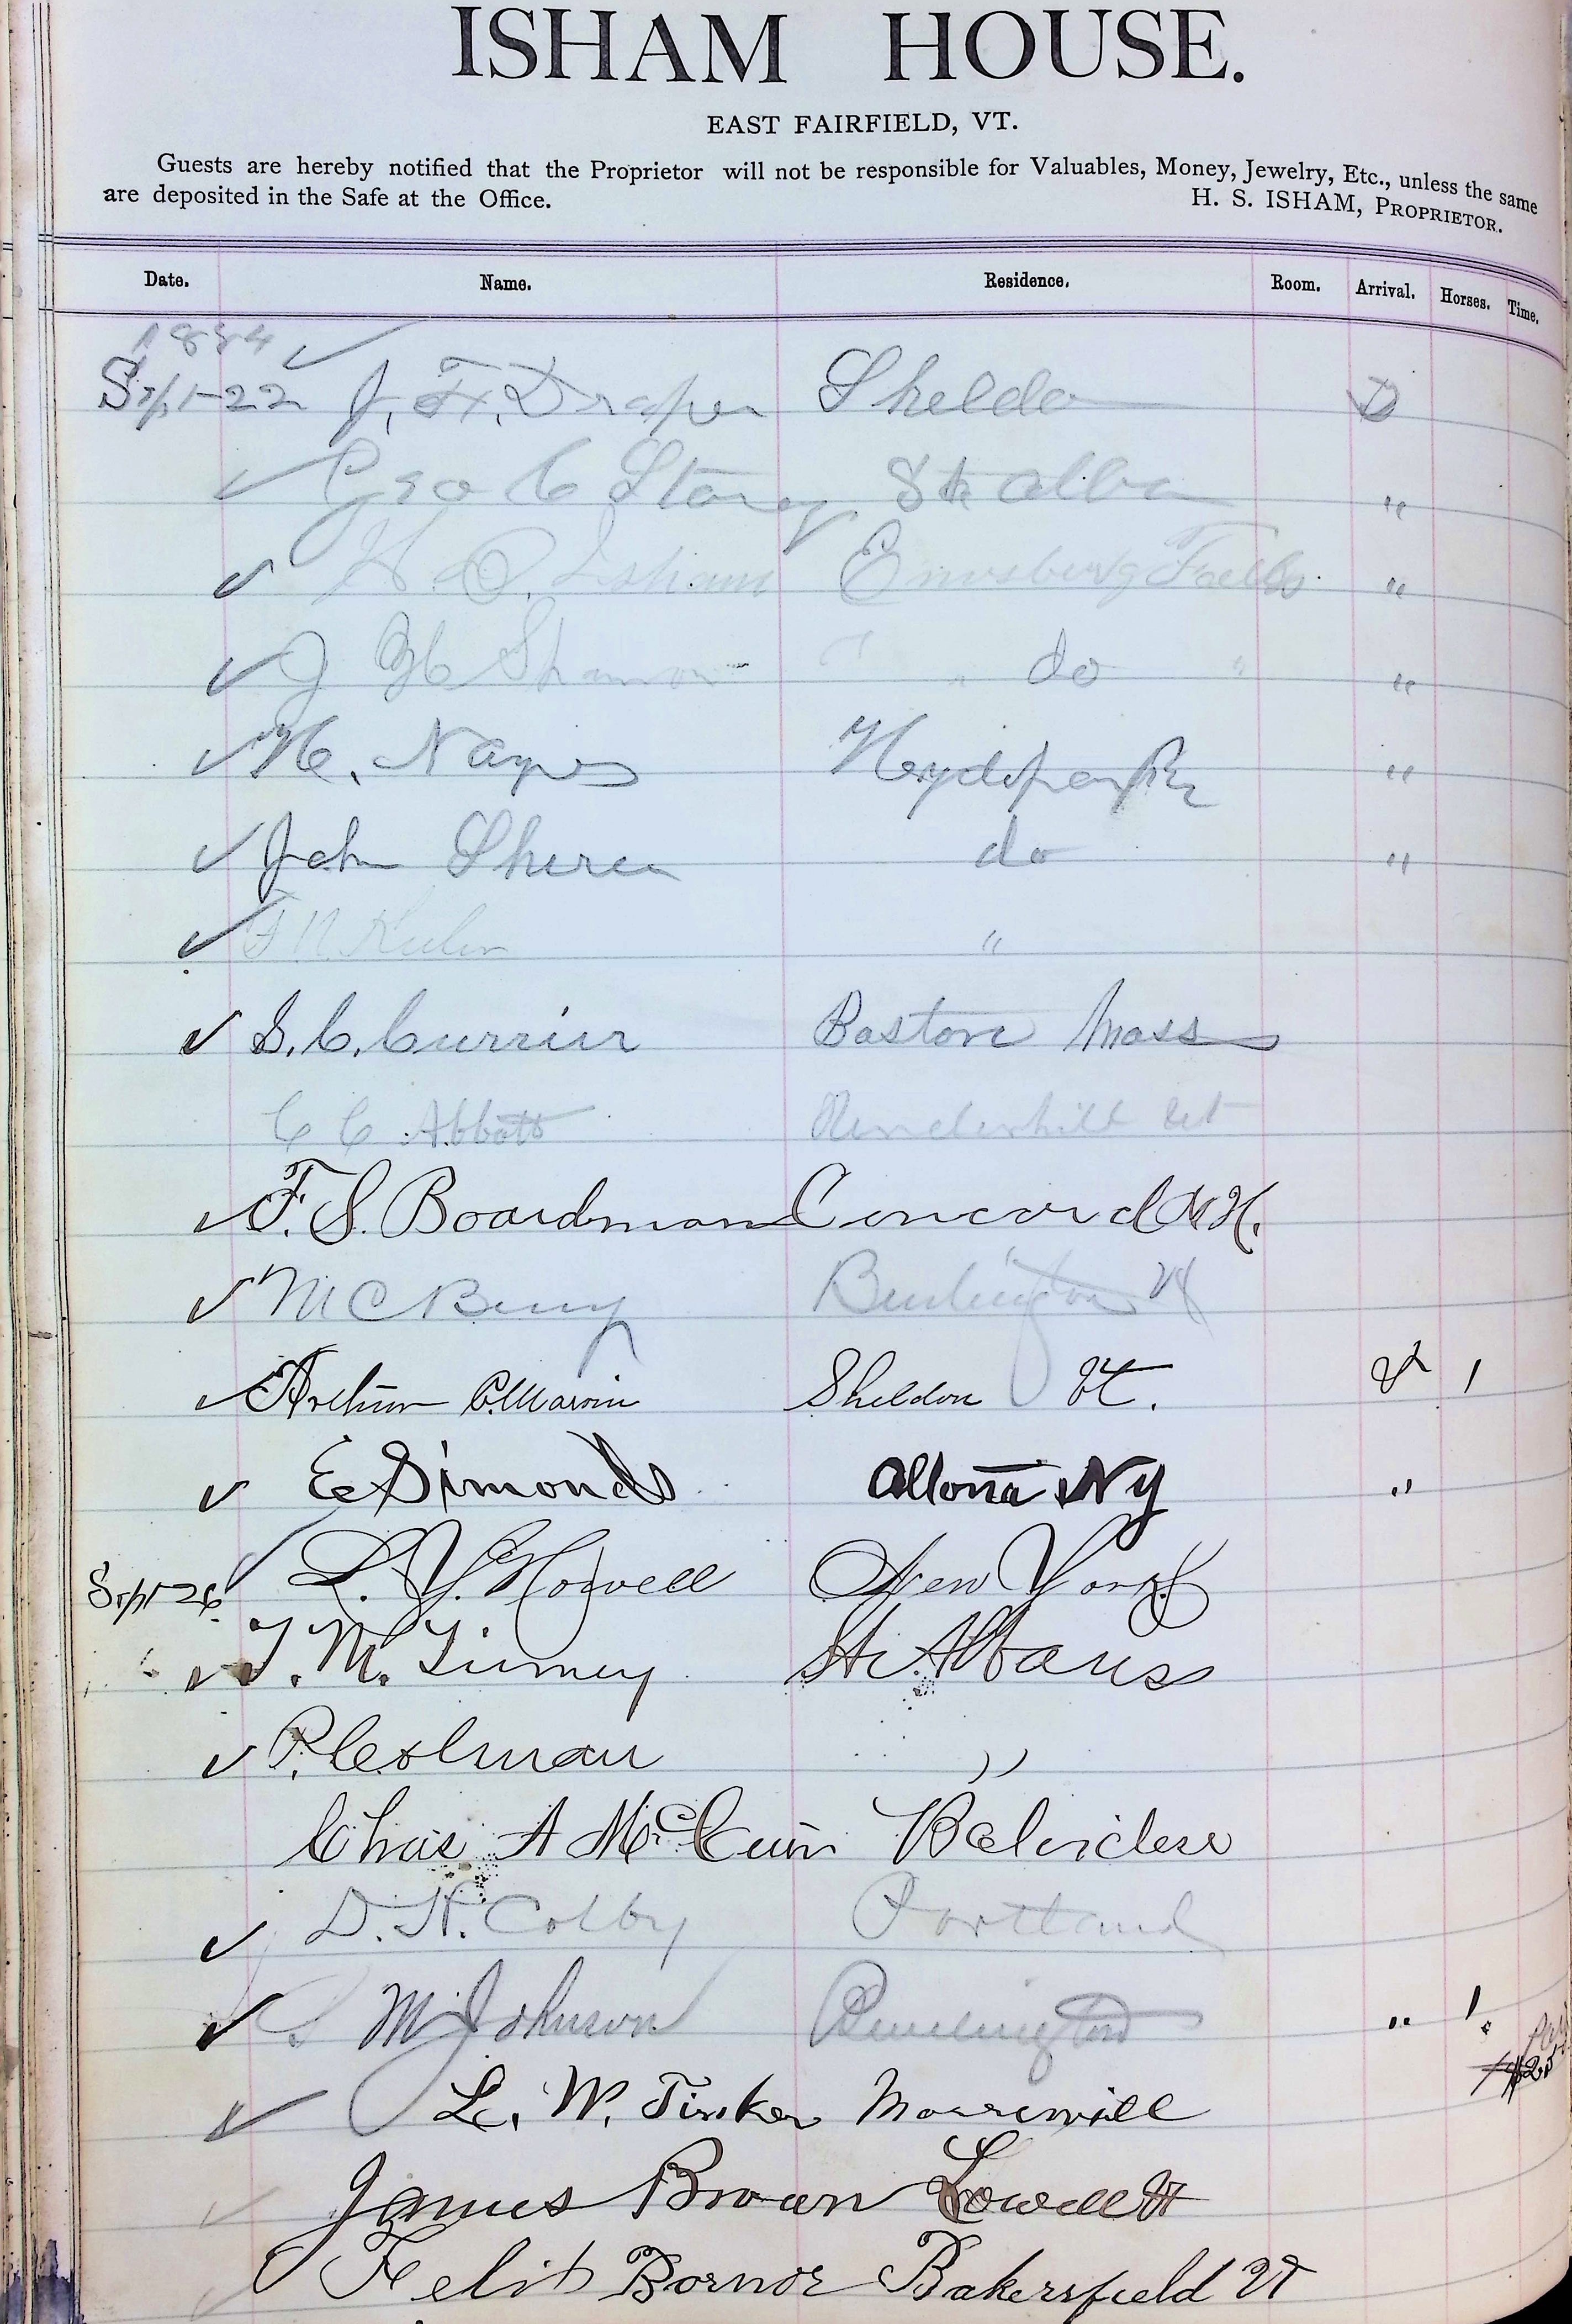 ISHAM HOUSE.
EAST FAIRFIELD, VT.
Guests are hereby notified that the Proprietor will not be responsible for Valuables, Money, Jewelry, Etc., unless the same
are deposited in the Safe at the Office. H. S. ISHAM, PROPRIETOR.
Date. Name. Residence. Room. Arrival. Horses. Time.
1884
Sept-22 J. F. Draper Sheldon D
Geo C Story St Alba "
H. S. Isham Enosburg Falls "
J H Shannon " do " "
H. Noyes Hydepark "
John Sheren do "
F N "
S. C. Currier Boston Mass
C C Abbott Underhill Vt
F. S. Boardman Concord N.H.
M C Berry Burlington Vt
Arthur C. Marvin Sheldon Vt. 1
E Simonds Altona NY "
Sept-26 L. Y. Howell New York
T. M. Tierney St. Albans
P. Colman "
Chas A McCuin Belvidere
D. H. Colby Portland
M Johnson Burlington " 1.
L. W. Tinker Morrisvill
James Brown Lowell Vt
Felix Bornor Bakersfield Vt